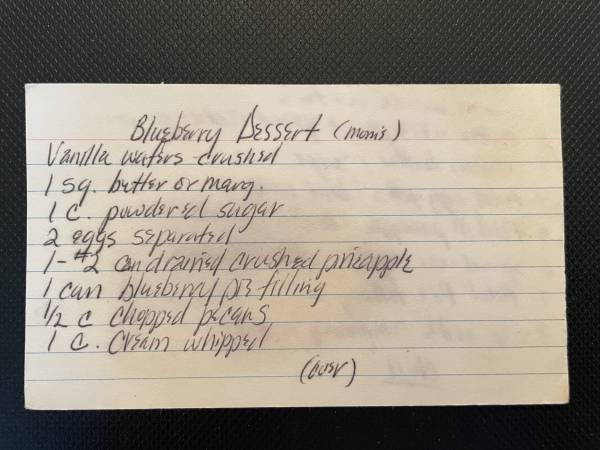 Blueberry Dessert (Mom's)
Vanilla wafers crushed
1 sq. butter or marg.
1 c. powdered sugar
2 eggs separated
1-#2 can drained crushed pineapple
1 can blueberry pie filling
1/2 c chopped pecans
1 c. cream whipped
(over)